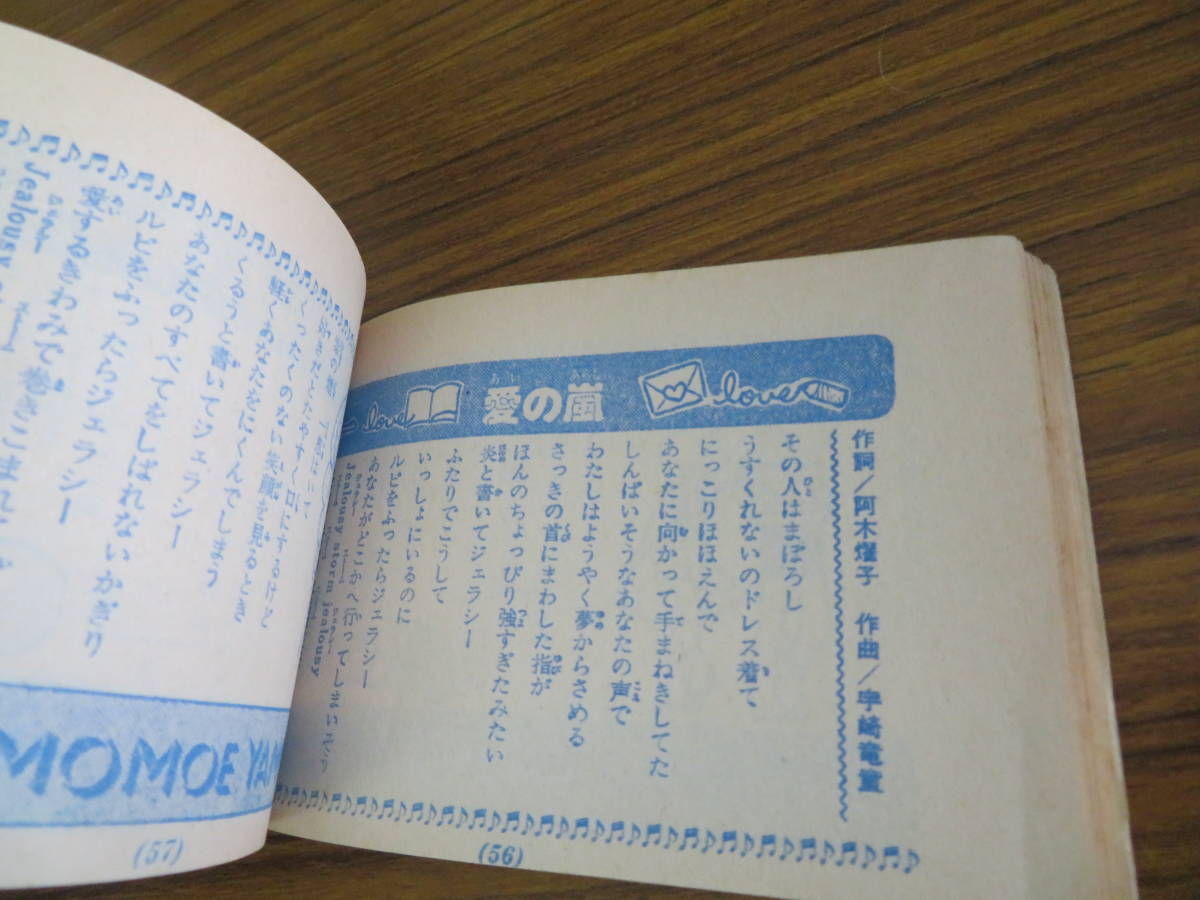 愛の嵐
love
love
作詞/阿木燿子 作曲/宇崎竜童
その人はまぼろし
うすくれないのドレス着て
にっこりほほえんで
あなたに向かって手まねきしてた
しんぱいそうなあなたの声で
わたしはようやく夢からさめる
さっきの首にまわした指が
ほんのちょっぴり強すぎたみたい
炎と書いてジェラシー
ふたりでこうして
いっしょにいるのに
ルビをふったらジェラシー
あなたがどこかへ行ってしまいそう
Jealousy storm jealousy
(56)
好きだとたやすく口にするけど
くったくのない笑顔を見るとき
軽くあなたをにくんでしまう
くるうと書いてジェラシー
あなたのすべてをしばれないかぎり
ルビをふったらジェラシー
愛するきわみで巻きこまれ
Jealousy
MOMOE YAM
(57)